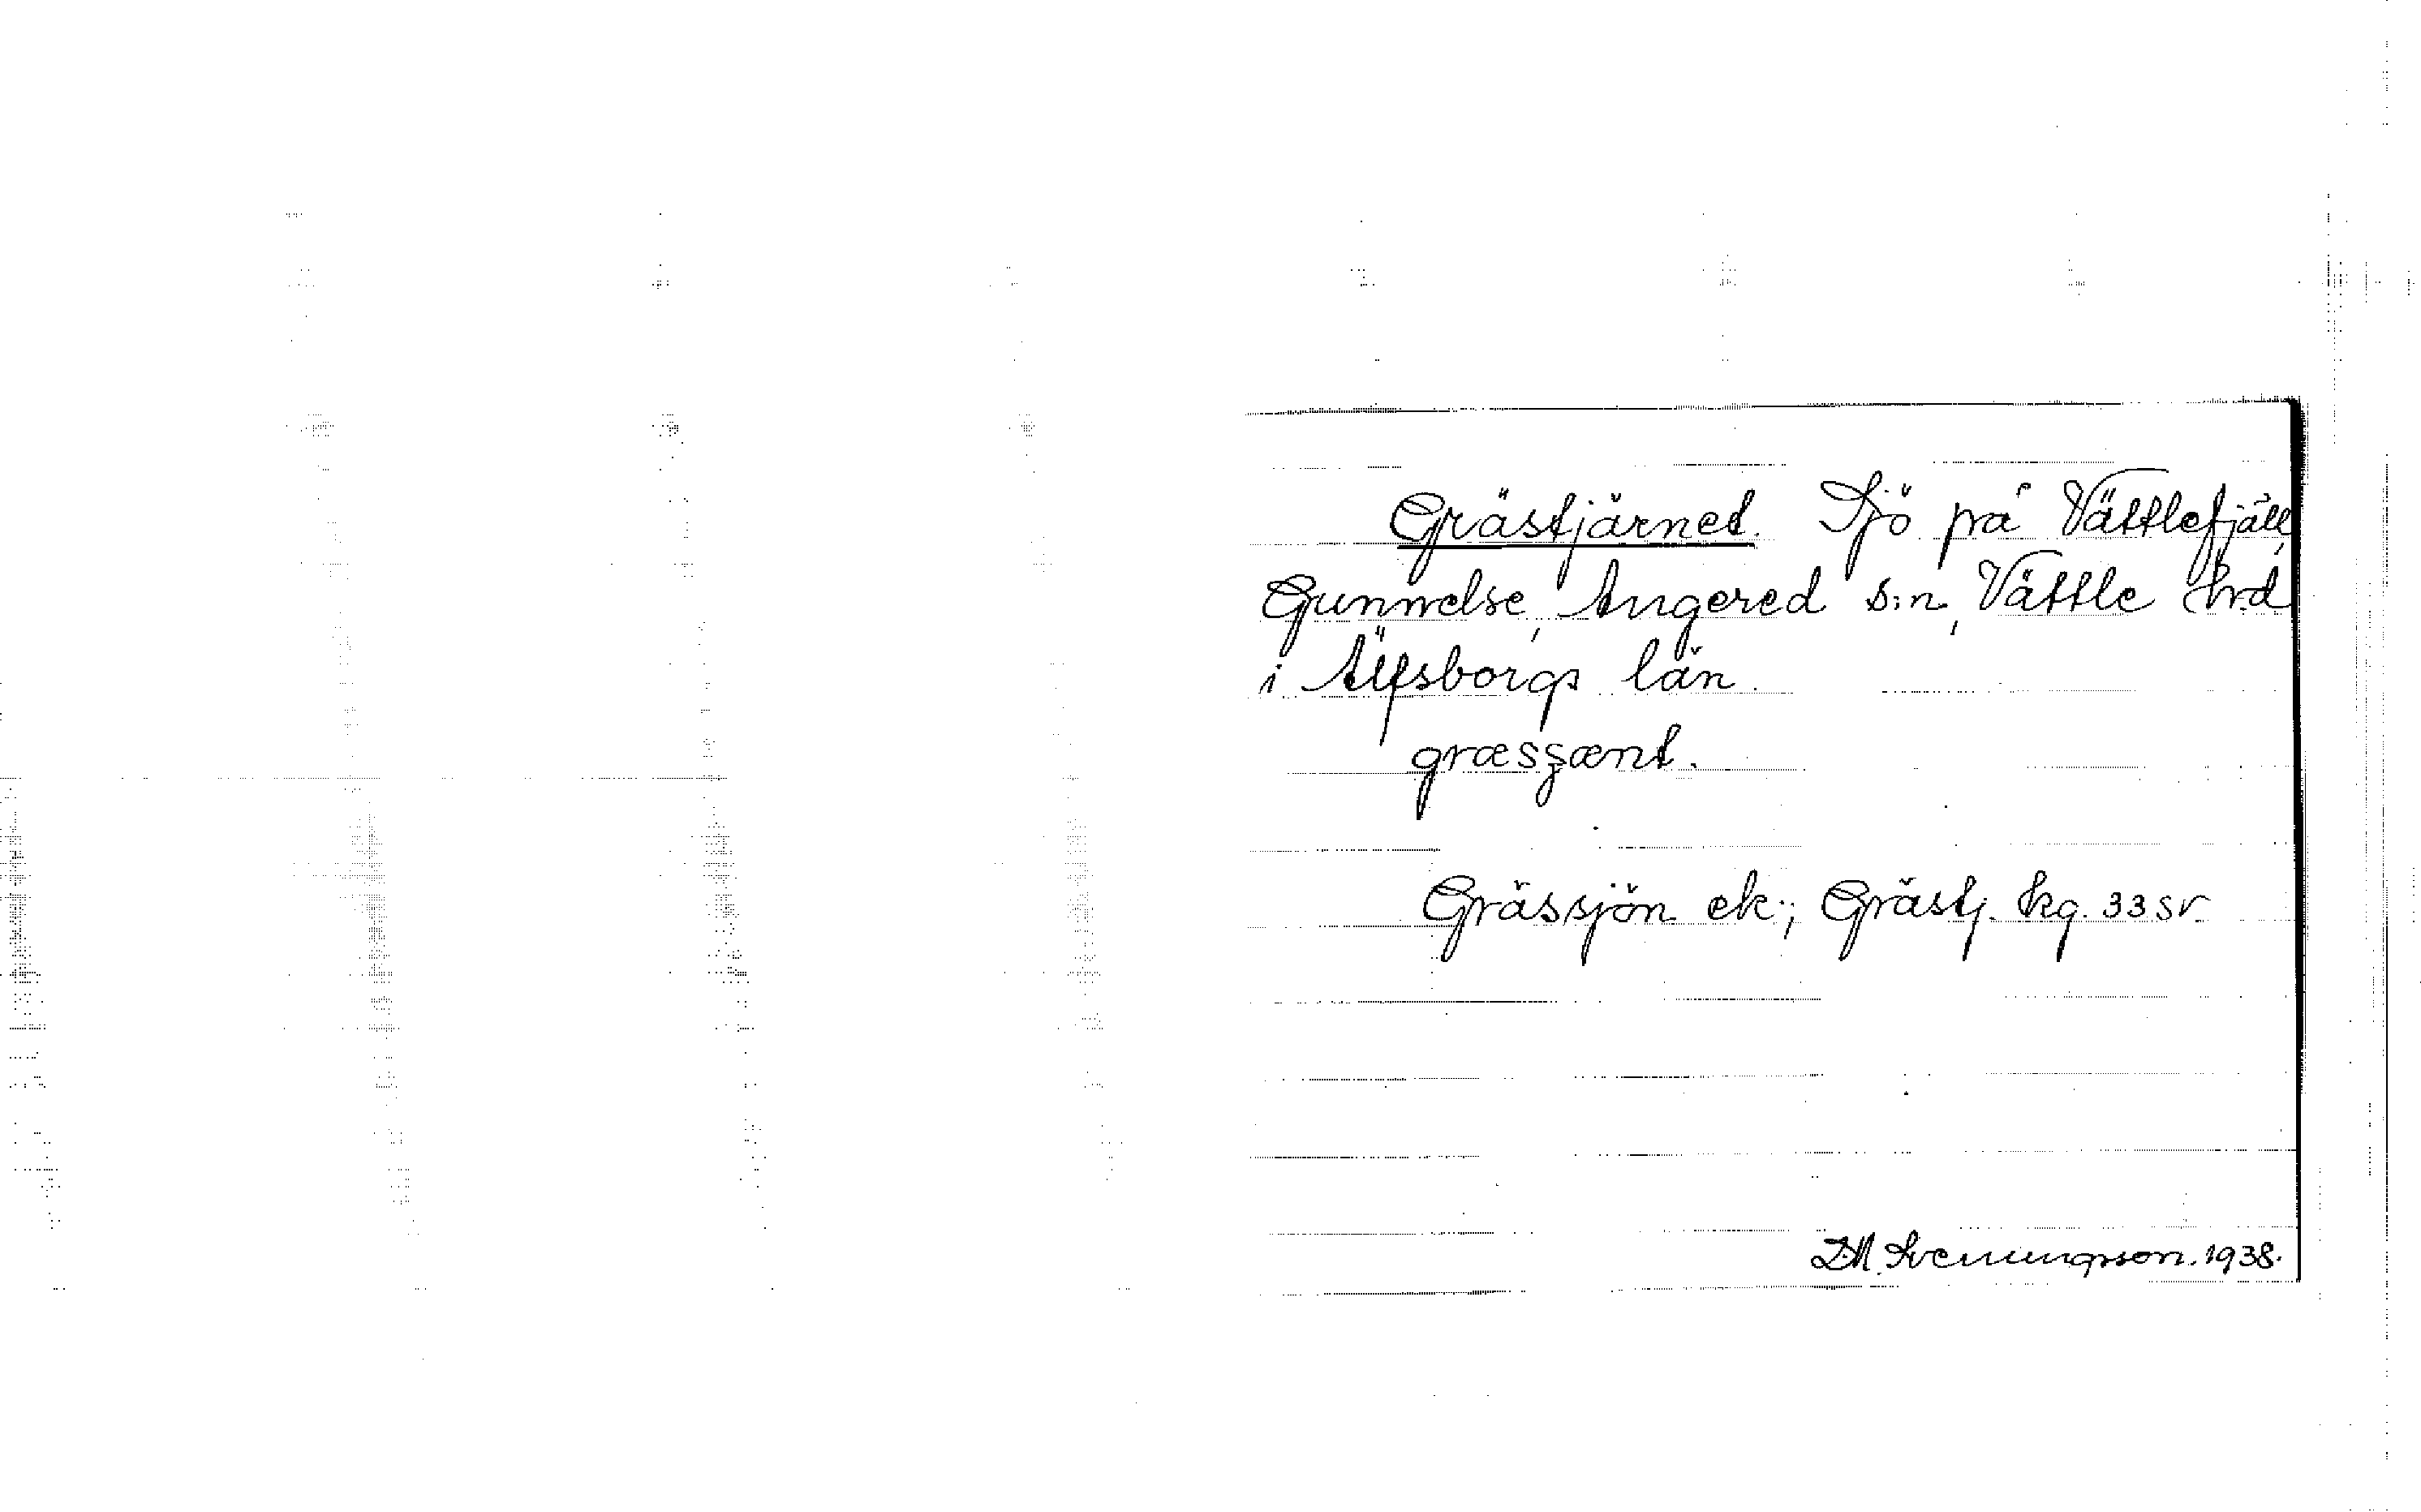 Grästjärnet. Sjö på Vättlefjäll,
Gunnelse, Angered s:n, Vättle hrd
i Älfsborgs län.
græsʂænt.
Grässjön ek.; Grästj. kg. 33 sv.
D.M. Svenungsson. 1938.